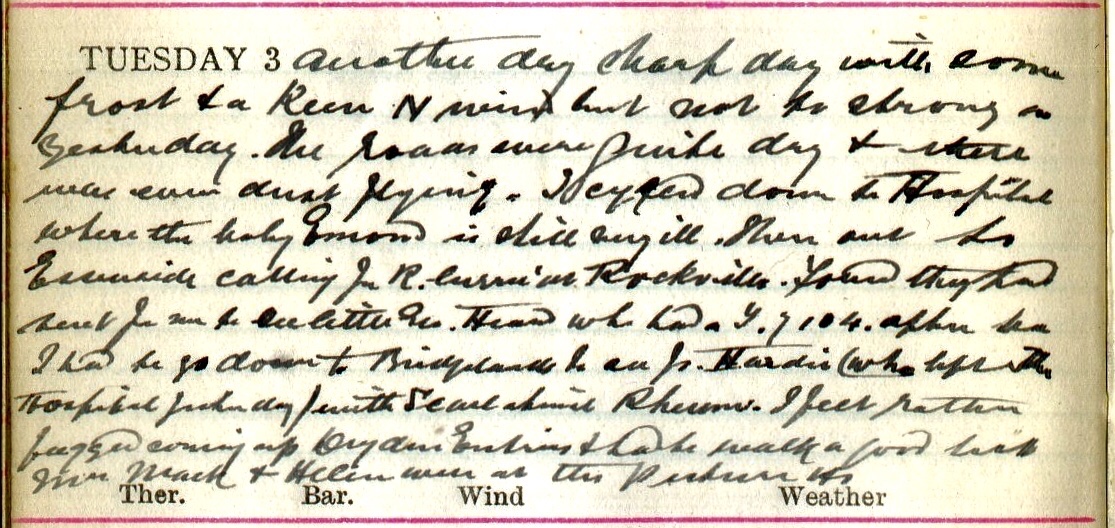 TUESDAY 3 Another day sharp day with some
frost & a Keen N wind but not so strong as
yesterday. The roads were quite dry & there
was even dust flying. I cycled down to Hospital
where the baby Emond is still very ill. Then out to
Esk calling for R. Currie at Rockville. Found they had
sent for me to see little Geo. Heard who had a T. of 104. after tea
I had to go down to Bridgelands to see Js. Hardie (who left the
Hospital yesterday) with Rheum. I felt rather
fagged coming up Dryden Entries & had to walk a good bit
Mack & Helen were at the Picture Ho
Ther. Bar. Wind Weather